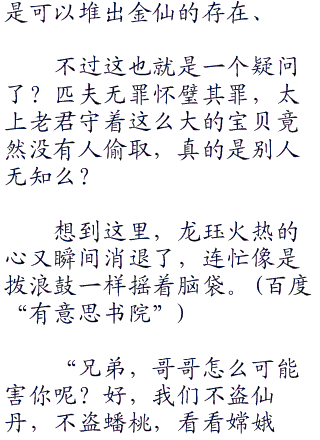 是可以堆出金仙的存在、
不过这也就是一个疑问
了？匹夫无罪怀璧其罪，太
上老君守着这么大的宝贝竟
然没有人偷取，真的是别人
无知么？
想到这里，龙珏火热的
心又瞬间消退了，连忙像是
拨浪鼓一样摇着脑袋。(百度
“有意思书院”)
“兄弟，哥哥怎么可能
害你呢？好，我们不盗仙
丹，不盗蟠桃，看看嫦娥